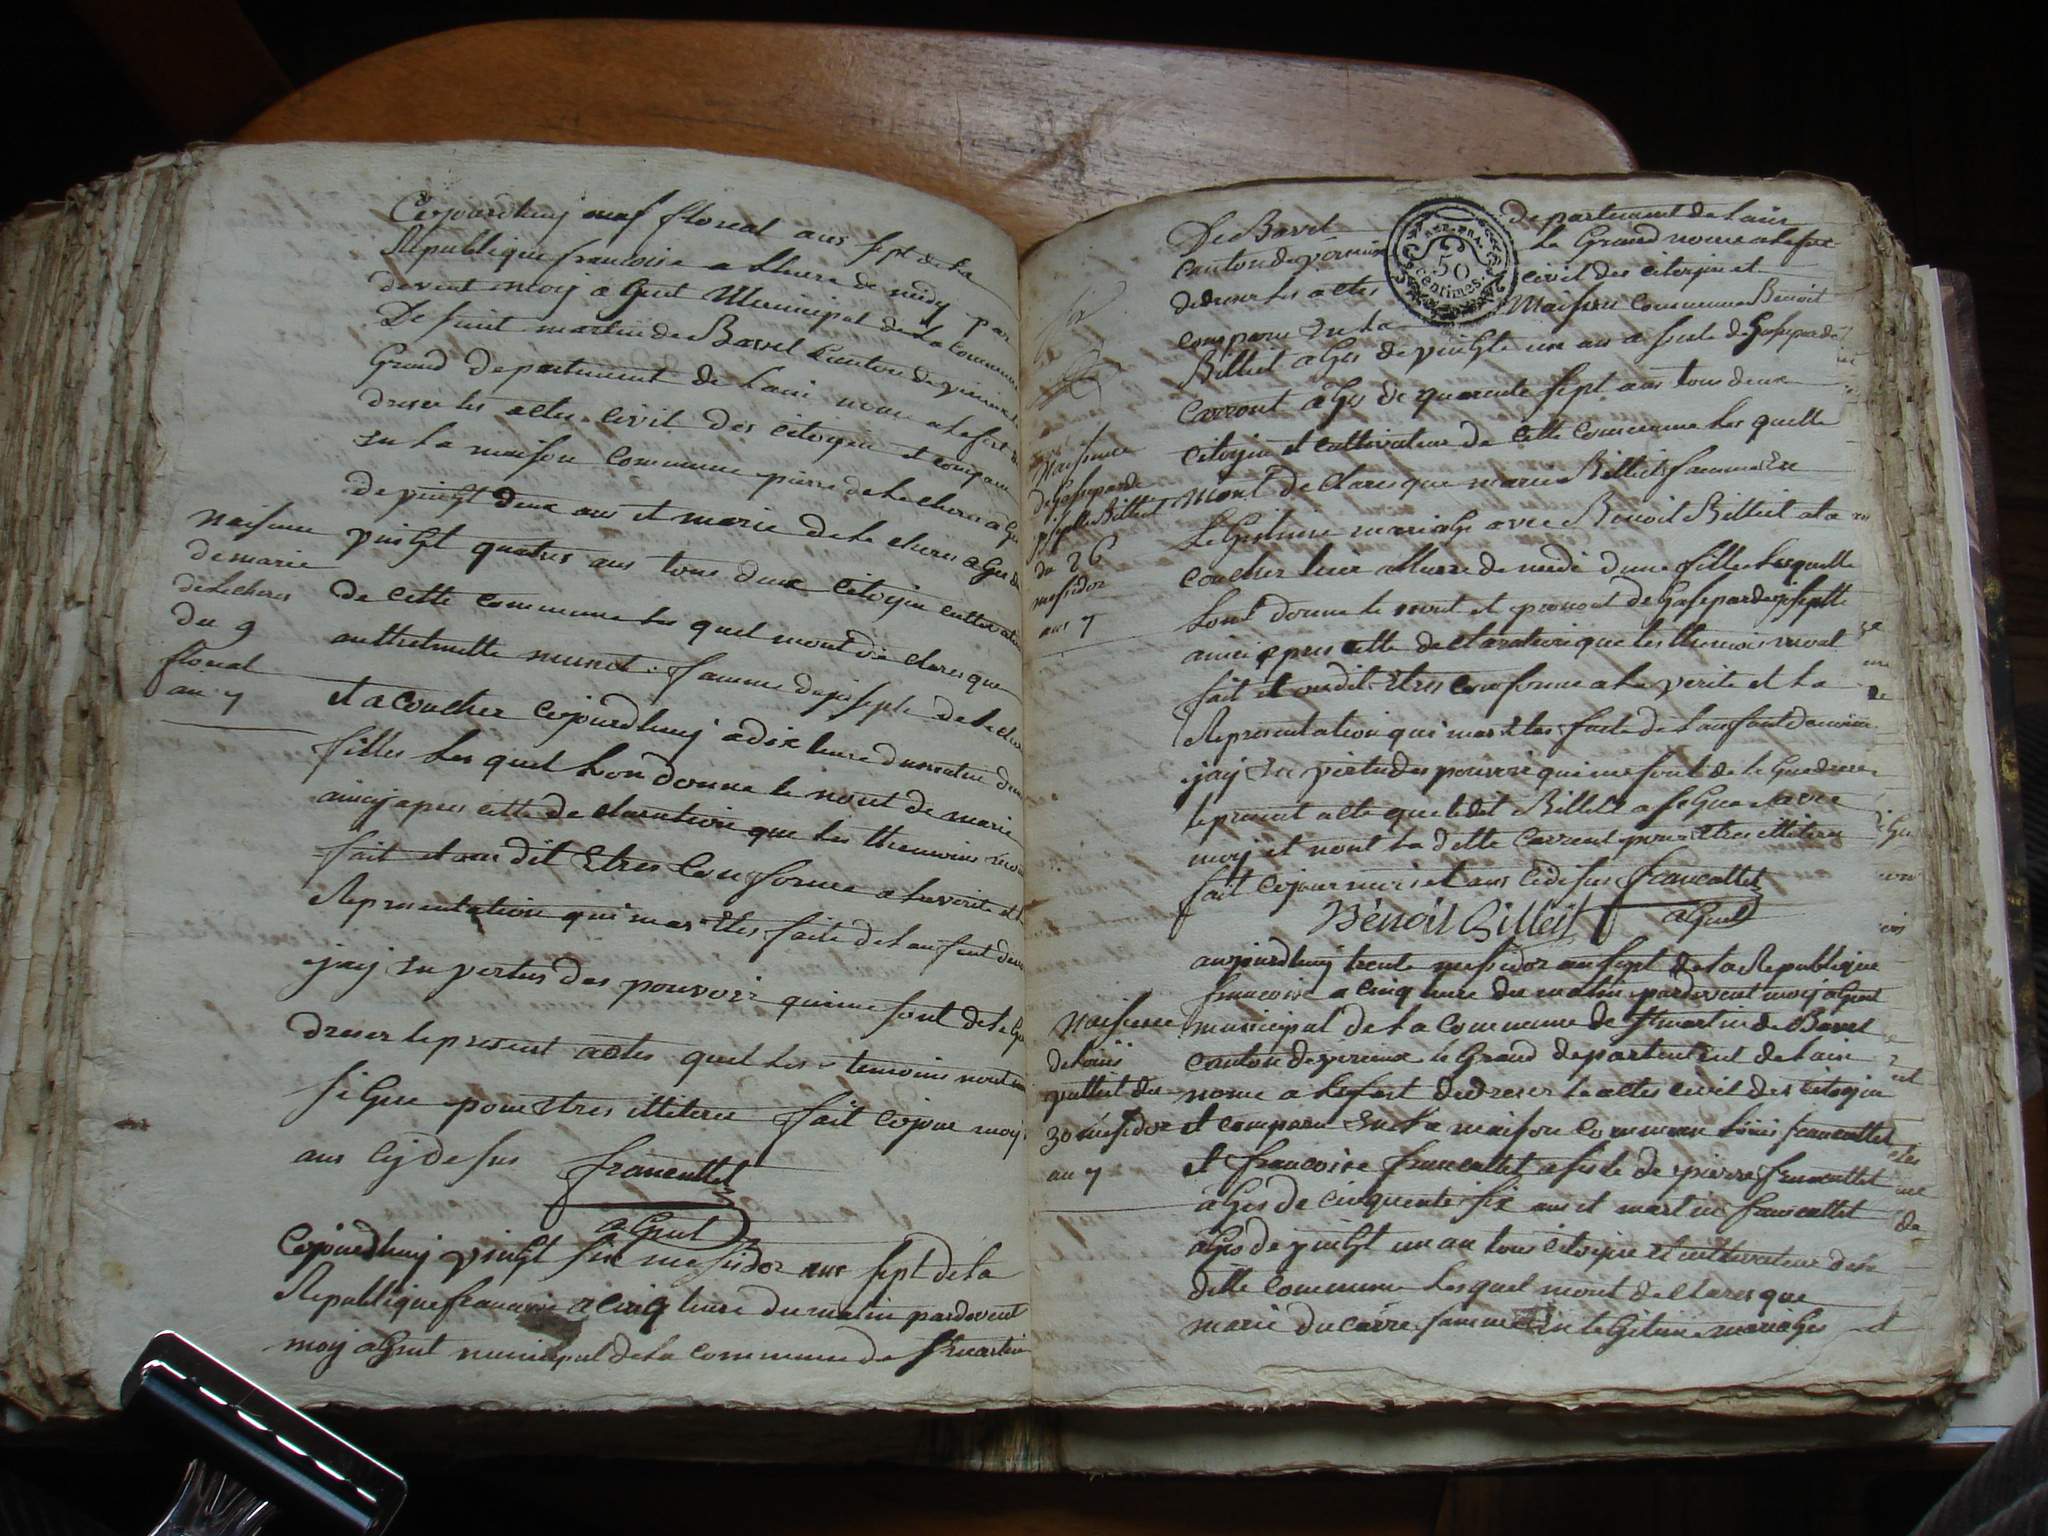 Cejourdhuy neuf floreal ans sept de la
Republique francoise a lheure de midy par
devent moy agent Municipal de la Commune
De saint martin de Bavel Canton de virieux le
Grand departement de lain nome a lefert de
dreser les actes civil des citoyen et comparu
en la maison commune pierre delecheres age
de vinght deux ans et marie delecheres agee de
vinght quatres ans tous deux citoyen cultivateur
de cette commune les quel mont declares que
anthelmette munet famme de joseph delecheres
et acoucher cejourdhuy a dix heure du matin dune
filles les quel lon donne le nont de marie
ainsy apres cette declaration que les themoins mont
fait et on dit Etres Conforme a laverite et la
Representation qui mas Etes faite de lanfent denome
jay En vertus des pouvoir quime sont delegue
dreser lepresent actes quel les temoins nont
signe pour Etres illiteree fait cejour mois
ans cy desus francallet
agent
Naisance
de marie
delecheres
du 9
floreal
an 7
Cejourdhuy vinght six mesidor ans sept dela
Republique francoise a cinq heure du matin pardevent
moy agent municipal dela commune de St martin
De Bavel departement de lain
canton de virieux le Grand nome a lefert
dedreser les actes civil des citoyen et
comparu En la Maison commune Benoit
REP. FRA.
50
centimes
Billiet ages de vinghte un ans a siste de Gasparde
Carront ages de quarente sept ans tous deux
citoyen et cultivateur de cette commune les quelle
mont declares que marie Billiet famme En
Legitime mariage avec Benoit Billiet ala
coucher hier alheure de midi dune fille lesquelle
lont donne le nont et prenont de Gasparde josephte
ainsi apres cette declaration que les themoins mont
fait et ondit Etres conforme a la verite et la
Representation qui mas Etes faite de lanfant denome
jay En vertu des pouvoir quime sont delegue dreser
lepresent acte que ledit Billiet a signe avec
moy et nont la ditte Carront pour Etres illiteree
fait cejour mois et ans cidesus francallet
Benoit Billiet agent
Naisance
de Gasparde
josephte Billiet
du 26
mesidor
ans 7
aujourdhuy trente mesidor an sept de la Republique
francoise a cinq heure du matin pardevent moy agent
municipal de la commune de St martin de Bavel
canton de virieux le Grand departement de lain
nome a lefert dedreser les actes civil des citoyen
et comparu En la maison commune louis francallet
et francoise francallet asiste de pierre francallet
ages de cinquante six ans et martin francallet
ages de vinght un an tous citoyen et cultivateur dela
ditte commune les quel mont declares que
marie du carre famme En legitime mariages et
Naisance
de louis
30 mesidor
an 7